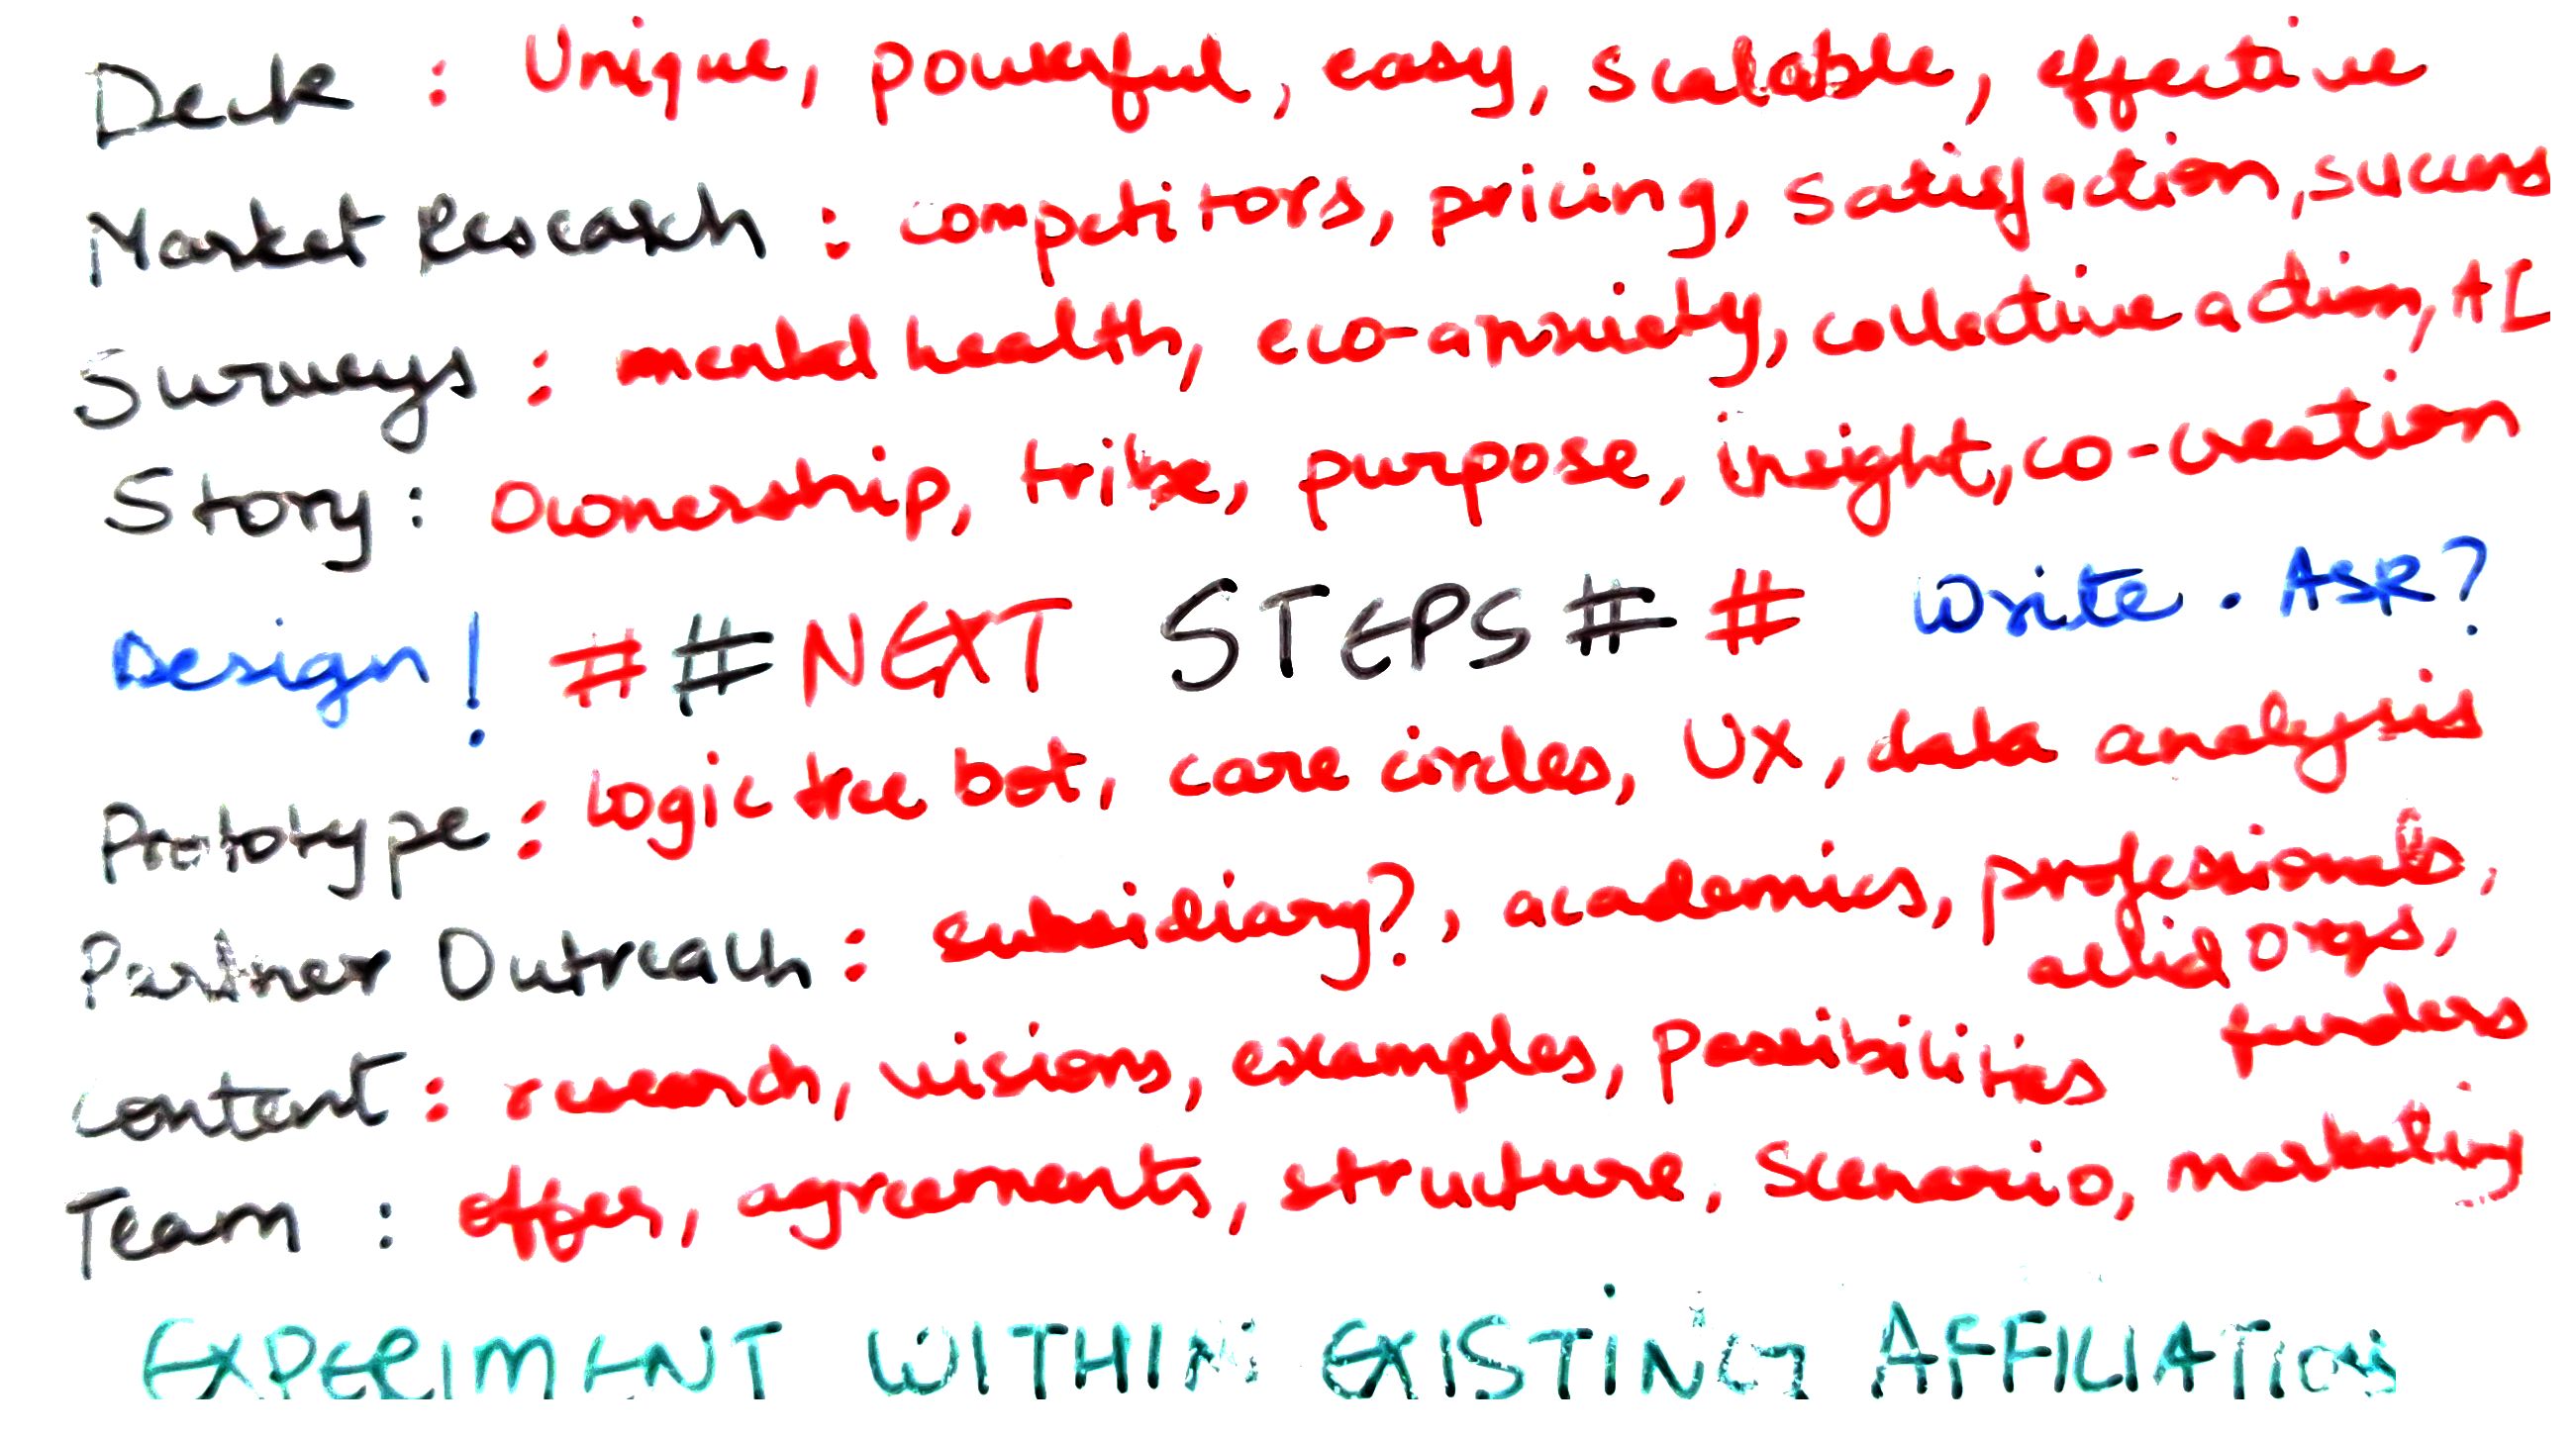 Deck : Unique, powerful, easy, scalable, effective
Market Research : competitors, pricing, satisfaction, success
Surveys : mental health, eco-anxiety, collective action, AI
Story : Ownership, tribe, purpose, insight, co-creation
Design! # # NEXT STEPS # # Write. ASK?
Prototype : logic tree bot, care circles, UX, data analysis
Partner Outreach : subsidiary?, academics, professionals,
allied orgs,
funders
Content : research, visions, examples, possibilities
Team : offer, agreements, structure, scenario, marketing
EXPERIMENT WITHIN EXISTING AFFILIATIONS